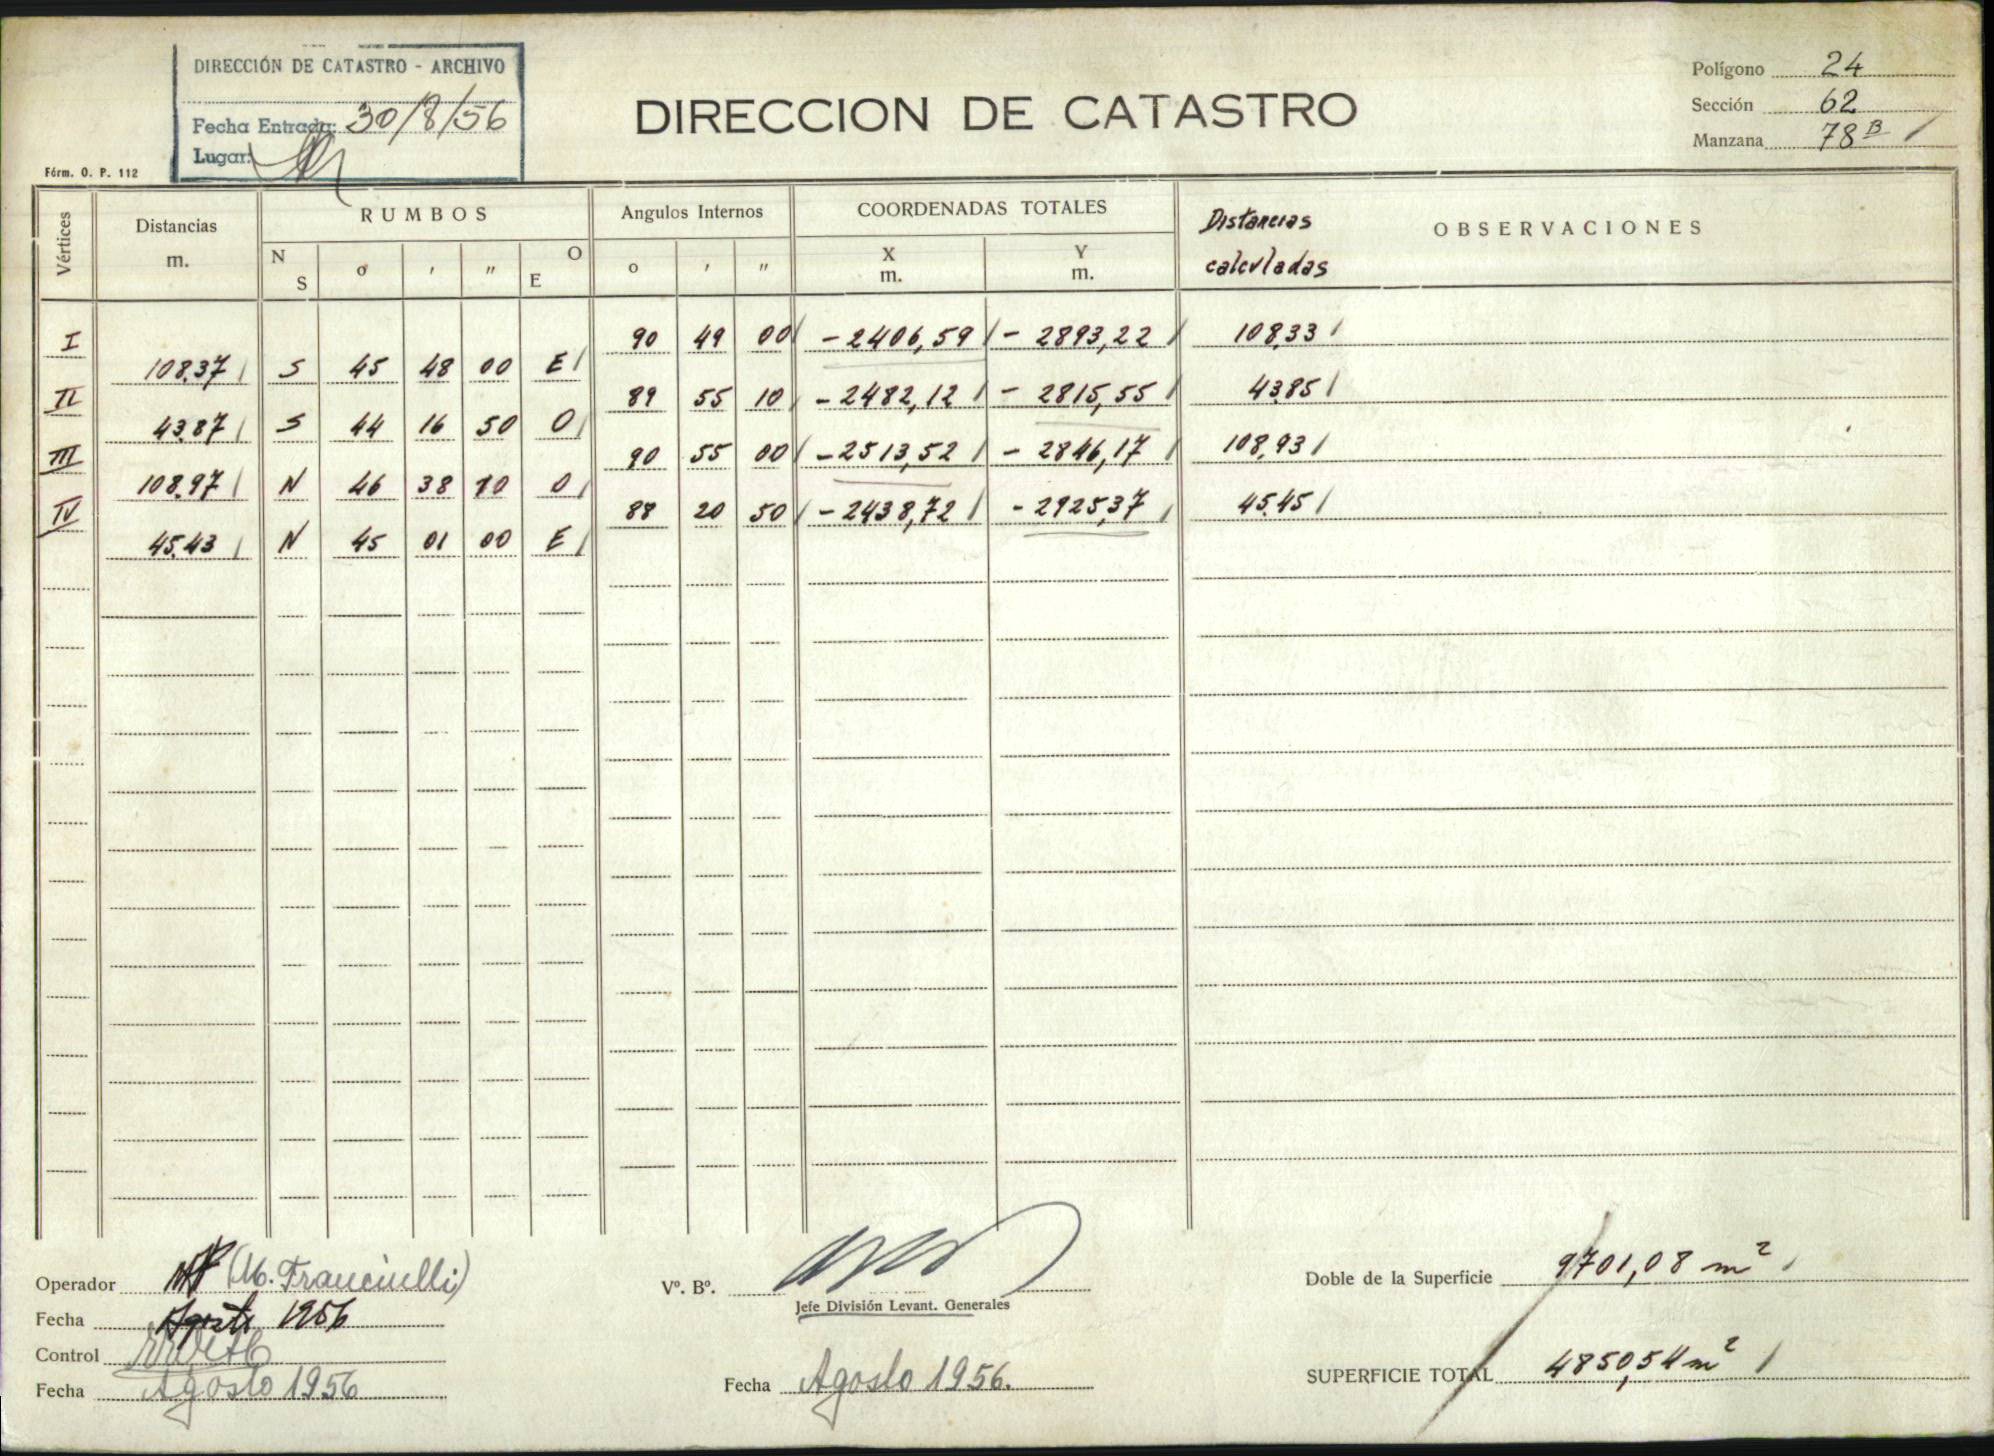 DIRECCIÓN DE CATASTRO - ARCHIVO
Fecha Entrada: 30/8/56
Lugar:
Fórm. O. P. 112
DIRECCION DE CATASTRO
Polígono 24
Sección 62
Manzana 78 B
Vértices
Distancias
m.
RUMBOS
N S
o
,
"
O E
Angulos Internos
o , "
COORDENADAS TOTALES
X
m.
Y
m.
Distancias
calculadas
OBSERVACIONES
I 90 49 00 -2406,59 - 2893,22 108,33
108,37 S 45 48 00 E
II 89 55 10 -2482,12 - 2815,55 43,85
43,87 S 44 16 50 O
III 90 55 00 -2513,52 - 2846,17 108,93
108,97 N 46 38 10 O
IV 88 20 50 -2438,72 - 2925,37 45,45
45,43 N 45 01 00 E
Operador (M. Franciulli)
Fecha Agosto 1956
Control
Fecha Agosto 1956
Vº. Bº.
Jefe División Levant. Generales
Fecha Agosto 1956.
Doble de la Superficie 9701,08 m2
SUPERFICIE TOTAL 4850,54 m2